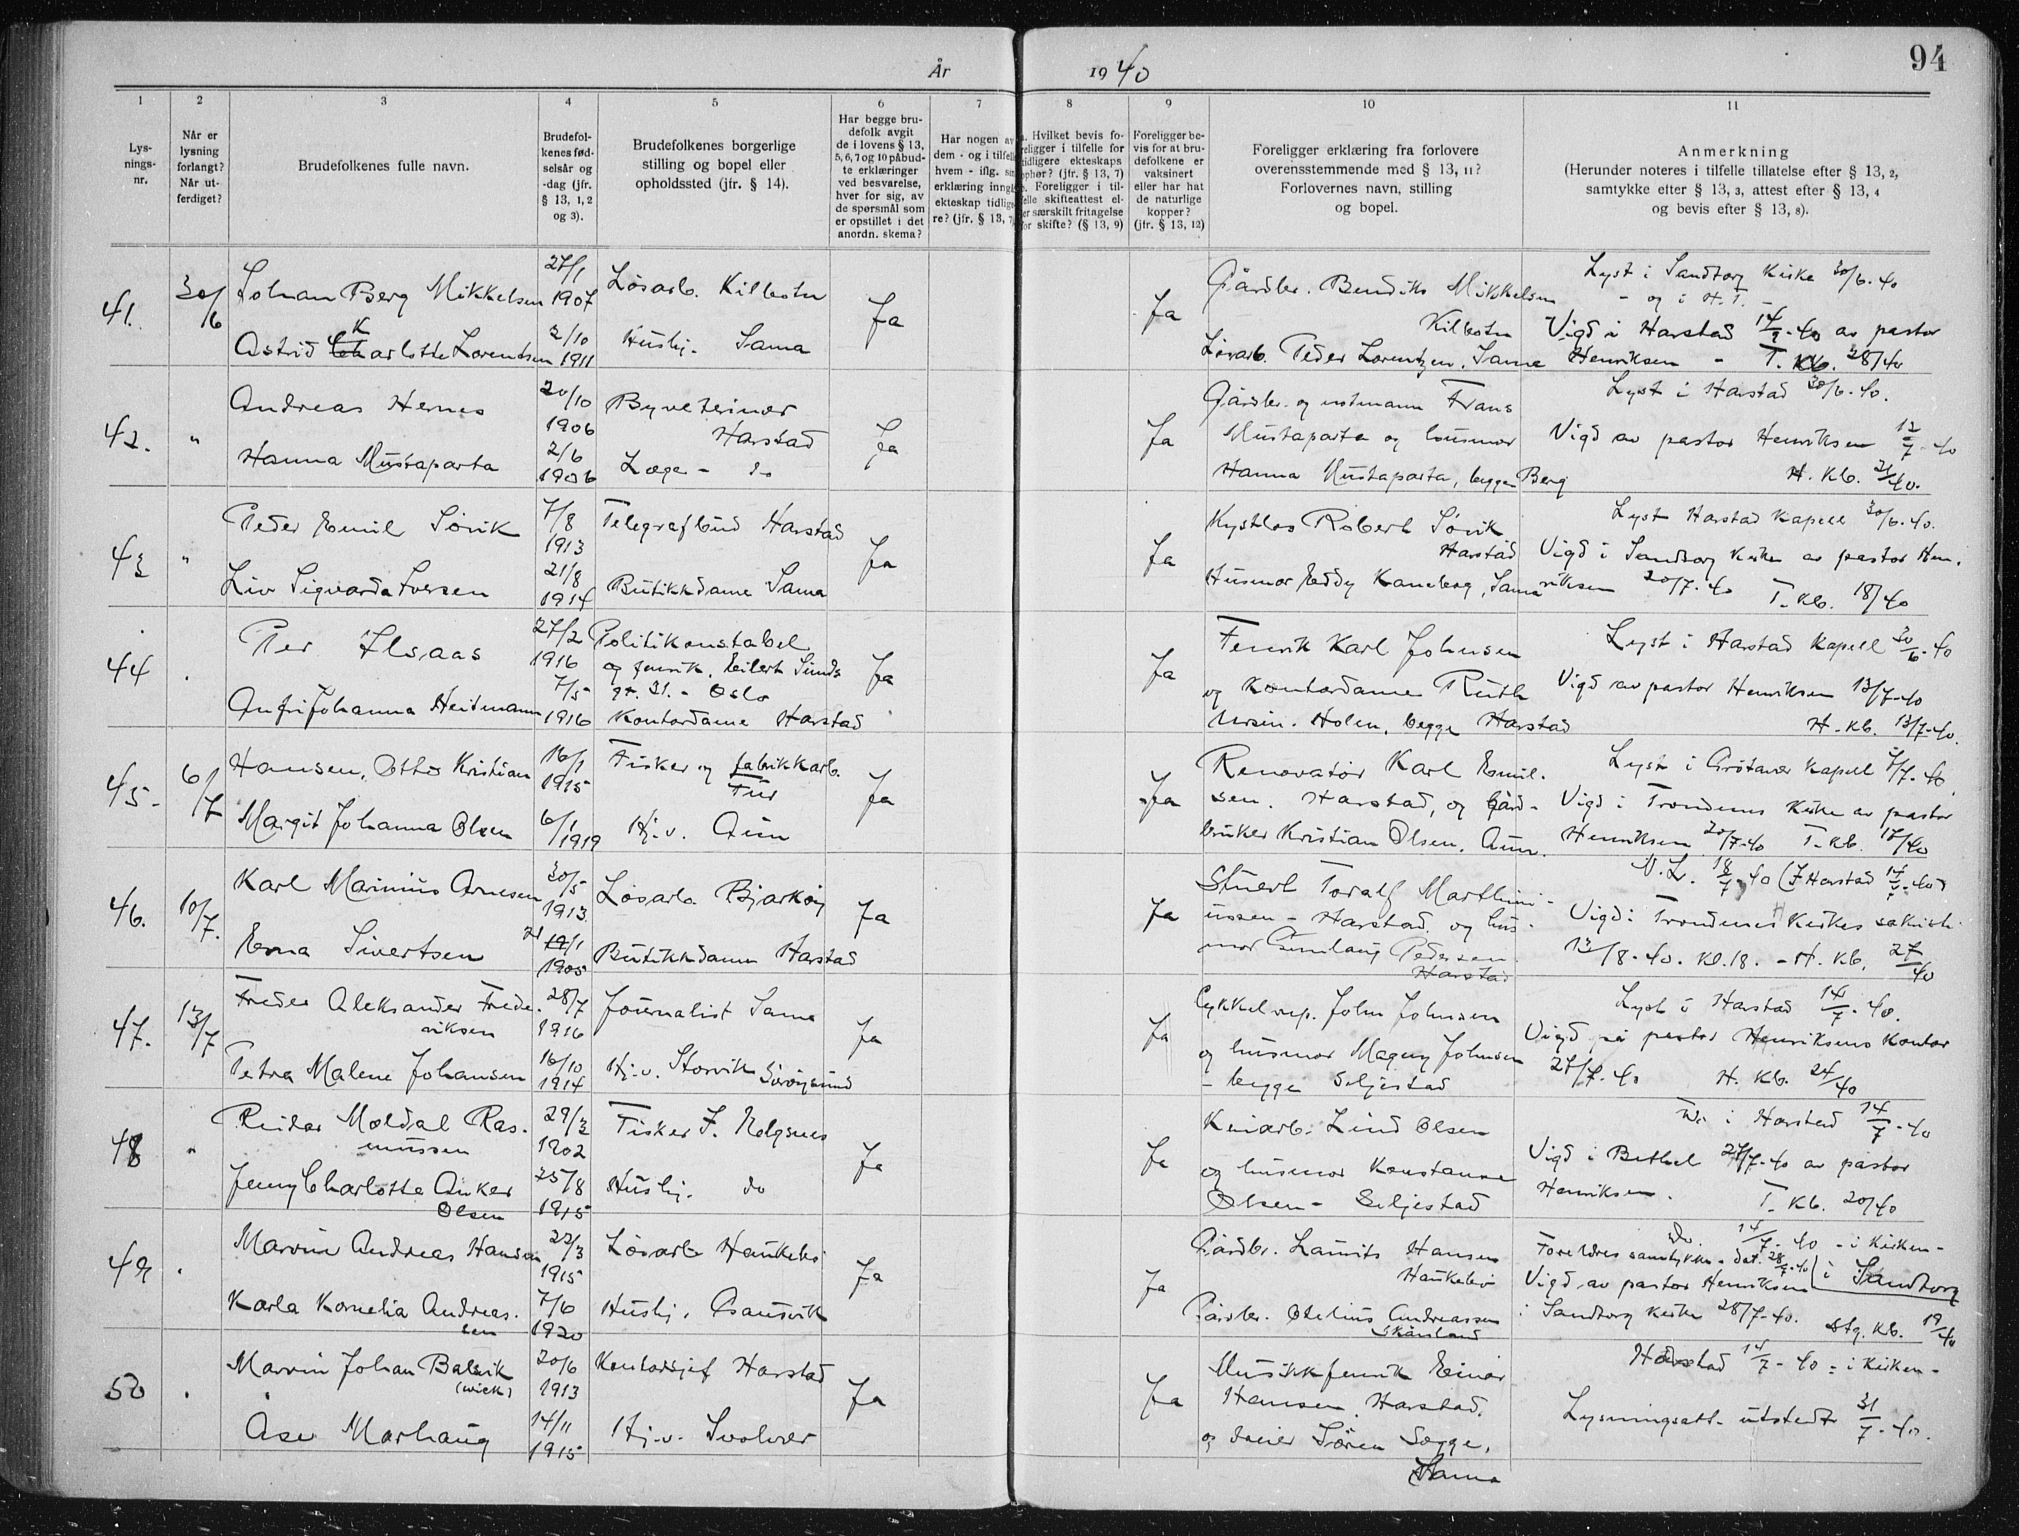 År 1940
94
1 2 3 4 5 6 7 8 9 10 11
Lys-
nings-
nr.
Når er
lysning
forlangt?
Når ut-
ferdiget?
Brudefolkenes fulle navn.
Brudefol-
kenes fød-
selsår og
-dag (jfr.
§ 13, 1, 2
og 3).
Brudefolkenes borgerlige
stilling og bopel eller
opholdssted (jfr. § 14).
Har begge bru-
defolk avgit
de i lovens § 13,
5, 6, 7 og 10 påbud-
te erklæringer
ved besvarelse,
hver for sig, av
de spørsmål som
er opstillet i det
anordn. skema?
Har nogen av
dem - og i tilfelle
hvem - iflg. sin
erklæring inngå
ekteskap tidlige
re? (jfr. § 13, 7
a. Hvilket bevis fo-
religger i tilfelle for
tidligere ekteskaps
ophør? (jfr. § 13, 7)
b. Foreligger i til-
felle skifteattest el-
er særskilt fritagelse
for skifte? (§ 13, 9)
Foreligger be-
vis for at bru-
defolkene er
vaksinert
eller har hat
de naturlige
kopper?
(jfr. § 13, 12)
Foreligger erklæring fra forlovere
overensstemmende med § 13, 11?
Forlovernes navn, stilling
og bopel.
Anmerkning
(Herunder noteres i tilfelle tillatelse efter § 13, 2,
samtykke efter § 13, 3, attest efter § 13, 4
og bevis efter § 13, 8).
41. 30/6
Johan Berg Mikkelsen 27/1 1907 Løsarb. Kilbotn
Astrid Karlotte Lorentsen 2/10 1911 Hushj. Sama
Ja
Ja
Gårdbr. Bendiks Mikkelsen
Kilbotn
Løsarb. Peder Lorentzen, Same
Lyst i Sandtorg Kirke 30/6-40
- og i H. T. -
Vigd i Harstad 14/9-40 av pastor
Henriksen - T. Kb. 28/40
42. "
Andreas Hernes 20/10 1906 Byveterinær
Harstad
Hanna Mustaparta 2/6 1906 Læge - do
Ja
Ja
Gårdbr. og notmann Frans
Mustaparta og husmor
Hanna Mustaparta, begge Berg
Lyst i Harstad 30/6-40.
Vigd av pastor Henriksen 12/7-40
H. Kb. 21/40.
43 "
Peder Emil Sørvik 7/8 1913 Telegrafbud Harstad
Liv Sigvarda Iversen 21/8 1914 Butikkdame Sama
Ja
Ja
Kystlos Robert Sørvik
Harstad
Husmor Eddy Kaneberg, Sama
Lyst Harstad Kapell 30/6-40.
Vigd i Sandtorg kirke av pastor Hen-
riksen 20/7-40 T. Kb. 18/40
44
Per Ilsaas 27/2 1916 Politikonstabel
og fenrik, Eilert Sunds
gt. 31. - Oslo
Anfri Johanna Heitmann 7/5 1916 Kontordame Harstad
Ja
Ja
Fenrik Karl Johnsen
og Kontordame Ruth
Holen, begge Harstad
Lyst i Harstad Kapell 30/6-40
Vigd av pastor Henriksen 13/7-40
H. Kb. 13/7-40.
45 - 6/7
Hansen, Otto Kristian 16/1 1915 Fisker og fabrikkarb.
Margit Johanna Olsen 6/1 1919 Hj.v. Aun
Ja
Ja
Renovatør Karl Emil-
sen. Harstad, og Gård-
bruker Kristian Olsen, Aun.
Lyst i Grøtavær Kapell 7/7-40
Vigd i Trondenes Kirke av pastor
Henriksen 20/7-40 T. Kb. 17/40
46. 10/7.
Karl Marinius Arnesen 30/5 1913 Løsarb. Bjarkøy
Erna Sivertsen 1905 Butikkdame Harstad
Ja
Ja
Stuert Toralf Marthini-
ussen - Harstad, og hus-
mor Gunlaug Pedersen.
Harstad
V. L. 18/7-40 (I Harstad 14/7-40)
Vigd i Trondenes Kirkes sakristi
13/8-40. Kl. 18. - H. Kb. 27/40
47. 13/7
Freder Aleksander Frede-
riksen 28/7 1916 Journalist Same
Petra Malene Johansen 16/10 1914 Hj.v. Storvik Sørøysund
Ja
Ja
Cykkelrep. John Johnsen
og husmor Magny Johnsen
- begge Seljestad
Lyst i Harstad 14/7-40.
Vigd på pastor Henriksens Kontor
27/7-40 H. Kb. 24/40
48 "
Reidar Moldal Ras-
mussen 29/3 1902 Fisker F. Helgsnes
Jenny Charlotte Anker
Olsen 25/8 1915 Hushj. do
Ja
Ja
Linarb. Lind Olsen
og husmor Konstanse
Olsen - Seljestad
Do i Harstad 14/7-40
Vigd i Bethel 27/7-40 av pastor
Henriksen. T. Kb. 20/40
49
Marvin Andreas Hansen 22/3 1915 Løsarb. Haukebø
Karla Kornelia Andreas-
sen 7/6 1920 Hushj. Gausvik
Ja
Ja
Gårdbr. Laurits Hansen
Haukebø
Gårdbr. Otelius Andreassen
Skånland
Do. 14/7-40 - i Kirken -
Foreldres samtykke - dat. 28/7-40 i Sandtorg
Vigd av pastor Henriksen
i Sandtorg kirke 28/7-40. Stg. Kb. 19/40
50
Marvin Johan Balsvik
(wick) 20/6 1913 Kontorsjef Harstad
Åse Marhaug 14/11 1915 Hj.v. Svolvær
Ja
Ja
Musikkfenrik Einar
Hansen, Harstad.
og Søren Sagge,
Sama
Harstad 14/7-40 - i Kirken -
Lysningsatt. utstedt 31/7-40.